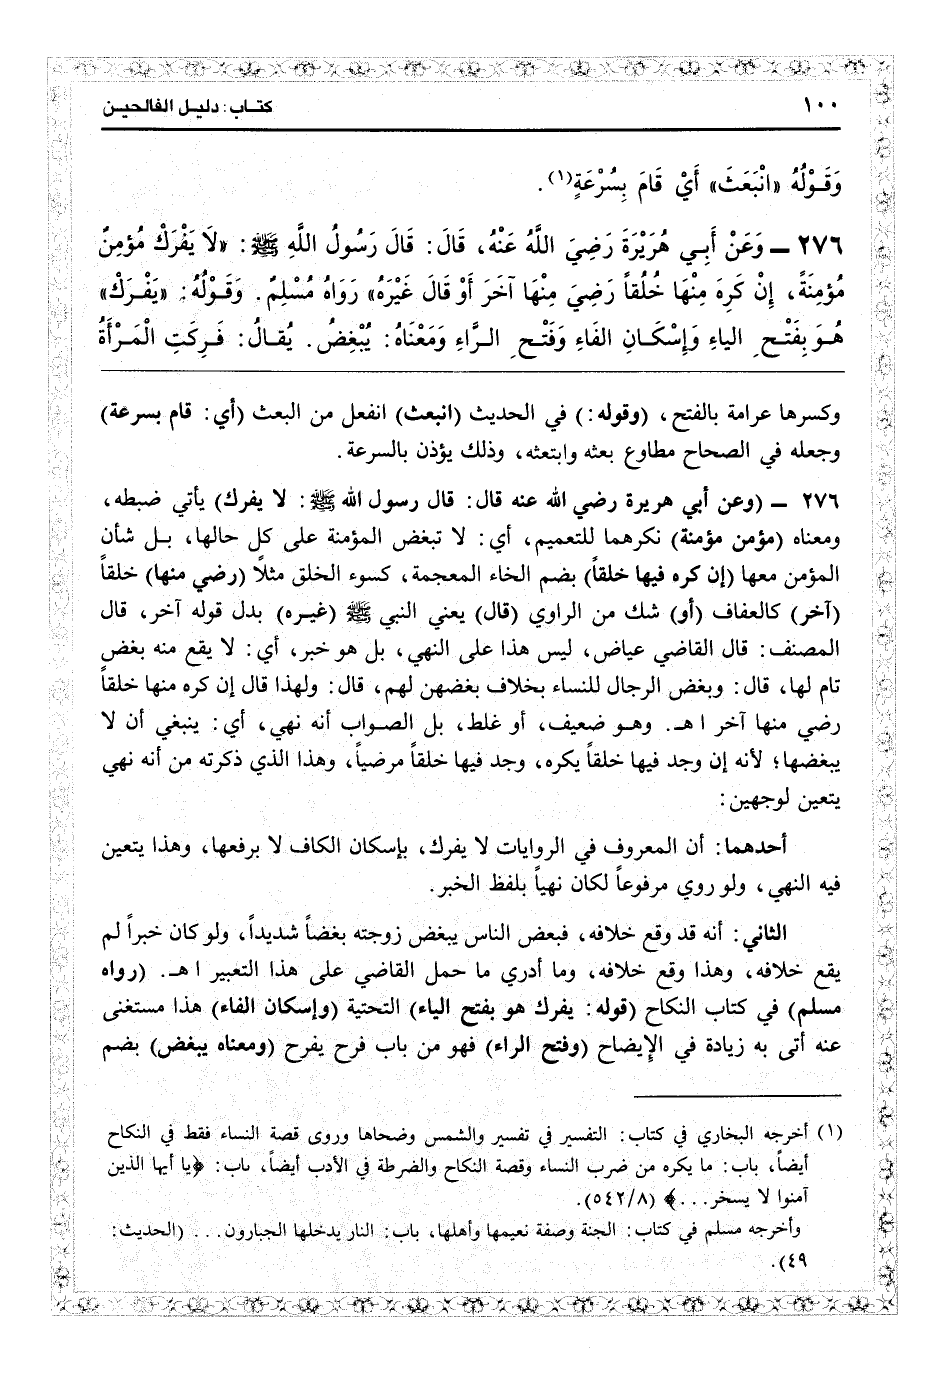 ١٠٠ كتاب: دليل الفالحين
وَقَوْلُهُ «انْبَعَثَ» أَيْ قَامَ بِسُرْعَةٍ(١).
٢٧٦ ـ وَعَنْ أَبِي هُرَيْرَةَ رَضِيَ اللَّهُ عَنْهُ، قَالَ: قَالَ رَسُولُ اللَّهِ ﷺ: «لَا يَفْرَكْ مُؤْمِنٌ
مُؤْمِنَةً، إِنْ كَرِهَ مِنْهَا خُلُقاً رَضِيَ مِنْهَا آخَرَ أَوْ قَالَ غَيْرَهُ» رَوَاهُ مُسْلِمٌ. وَقَوْلُهُ: «يَفْرَك»
هُوَ بِفَتْحِ الياءِ وَإِسْكَانِ الفَاءِ وَفَتْحِ الرَّاءِ وَمَعْنَاهُ: يُبْغِضُ. يُقالُ: فَرِكَتِ الْمَرْأَةُ
وكسرها عرامة بالفتح، (وقوله:) في الحديث (انبعث) انفعل من البعث (أي: قام بسرعة)
وجعله في الصحاح مطاوع بعثه وابتعثه، وذلك يؤذن بالسرعة.
٢٧٦ ـ (وعن أبي هريرة رضي الله عنه قال: قال رسول الله ﷺ: لا يفرك) يأتي ضبطه،
ومعناه (مؤمن مؤمنة) نكرهما للتعميم، أي: لا تبغض المؤمنة على كل حالها، بل شأن
المؤمن معها (إن كره فيها خلقاً) بضم الخاء المعجمة، كسوء الخلق مثلاً (رضي منها) خلقاً
(آخر) كالعفاف (أو) شك من الراوي (قال) يعني النبي ﷺ (غيره) بدل قوله آخر، قال
المصنف: قال القاضي عياض، ليس هذا على النهي، بل هو خبر، أي: لا يقع منه بغض
تام لها، قال: وبغض الرجال للنساء بخلاف بغضهن لهم، قال: ولهذا قال إن كره منها خلقاً
رضي منها آخر اهـ. وهو ضعيف، أو غلط، بل الصواب أنه نهي، أي: ينبغي أن لا
يبغضها؛ لأنه إن وجد فيها خلقاً يكره، وجد فيها خلقاً مرضياً، وهذا الذي ذكرته من أنه نهي
يتعين لوجهين:
أحدهما: أن المعروف في الروايات لا يفرك، بإسكان الكاف لا برفعها، وهذا يتعين
فيه النهي، ولو روي مرفوعاً لكان نهياً بلفظ الخبر.
الثاني: أنه قد وقع خلافه، فبعض الناس يبغض زوجته بغضاً شديداً، ولو كان خبراً لم
يقع خلافه، وهذا وقع خلافه، وما أدري ما حمل القاضي على هذا التعبير اهـ. (رواه
مسلم) في كتاب النكاح (قوله: يفرك هو بفتح الياء) التحتية (وإسكان الفاء) هذا مستغنى
عنه أتى به زيادة في الإيضاح (وفتح الراء) فهو من باب فرح يفرح (ومعناه يبغض) بضم
(١) أخرجه البخاري في كتاب: التفسير في تفسير والشمس وضحاها وروى قصة النساء فقط في النكاح
أيضاً، باب: ما يكره من ضرب النساء وقصة النكاح والضرطة في الأدب أيضاً، باب: ﴿يا أيها الذين
آمنوا لا يسخر...﴾ (٥٤٢/٨).
وأخرجه مسلم في كتاب: الجنة وصفة نعيمها وأهلها، باب: النار يدخلها الجبارون... (الحديث:
٤٩).